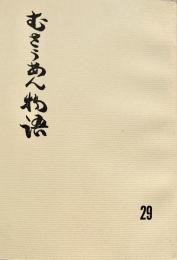 むさうあん物語
29